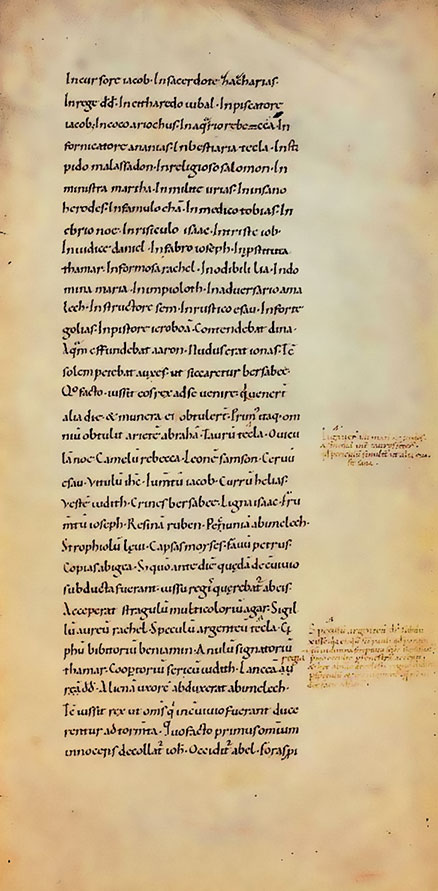 In cursore iacob· In sacerdote zacharias·
In rege dd̄· In citharedo iubal· In piscatore
iacob· In coco ariochus· In aq̄rio rebecca· In
fornicatore ananias· In bestiaria tecla· In stu
pido malassadon· In religioso salomon· In
ministra martha· In milite urias· In insano
herodes· In famulo chā· In medico tobias· In
ebrio noe· In risiculo isaac· In triste iob·
In iudice daniel· In fabro ioseph· In p̄stituta
thamar· In formosa rachel· In odibili lia· In do
mina maria· In impio loth· In aduersario ama
lech· In structore sem· In rustico esau· In forte
golias· In pistore ieroboā· Contendebat dina·
Aq̄m effundebat aaron· Nudus erat ionas· Tē
solem petebat auxes· ut siccaretur bersabee·
Qo facto· iussit eos rex ad se uenire· q̄uenerī
alia die· & munera ei obtulerī· Prim̄ itaq· om
niū obtulit arietē abrahā· Taurū tecla· Ouicu
lā noe· Camelū rebecca· Leonē samson· Ceruū
esau· Vitulū ihc̄· Iumtū iacob· Currū helias·
Vestē iudith· Crines bersabee· Ligna isaac· Fru
mtū ioseph· Resinā ruben· Peccuniā abimelech·
Strophiolū leui· Capsas moyses· fauū petrus·
Copias abigea· Si quo ante die quędā de cūiuio
subducta fuerant· iussu regis querebat̄ ab eis·
Acceperat stragulū multicoloriū agar· Sigil
lū aureū rachel· Speculū argenteū tecla· Cy
phū bibitoriū beniamin· Anulū signatoriū
thamar· Coop̄toriū sericū iudith· Lanceā
regiā dd̄· Alienā uxorē abduxerat abimelech·
Tē iussit rex ut om̄s q̄ in cūiuio fuerant duce
rentur ad torm̄ta· Quo facto primus omium
innocens decollat̄ ioh̄· Occidit̄ abel· foras pi